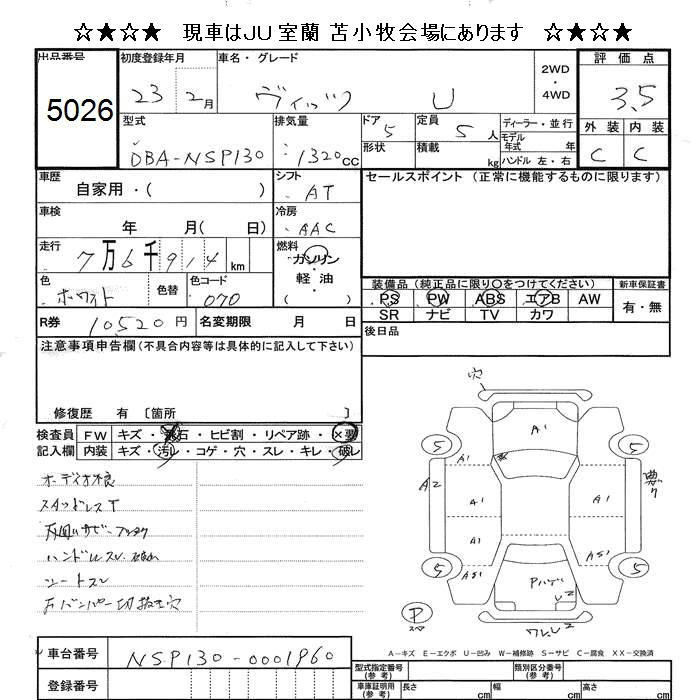 ☆★☆★ 現車はJU室蘭 苫小牧会場にあります ☆★☆★
出品番号 初度登録年月 車名・グレード 2WD ・ 4WD 評価点
5026 23 2月 ヴィッツ U 3.5
型式 排気量 ドア 5 定員 5 人 ディーラー・並行 外装 内装
DBA-NSP130 1320cc 形状 積載 kg モデル年式 年 ハンドル 左・右 C C
車歴 自家用・( ) シフト AT セールスポイント (正常に機能するものに限ります)
車検 年 月( 日) 冷房 AAC
走行 7万6千914 km 燃料 ガソリン・軽油・( )
色 ホワイト 色替 色コード 070
装備品 (純正品に限り○をつけてください) 新車保証書
PS PW ABS エアB AW 有・無
SR ナビ TV カワ
R券 10520円 名変期限 月 日 後日品
注意事項申告欄(不具合内容等は具体的に記入して下さい)
修復歴 有 〔箇所 〕
検査員 FW キズ・飛石・ヒビ割・リペア跡・X要
記入欄 内装 キズ・汚レ・コゲ・穴・スレ・キレ・破レ
オーディオ不良
スタッドレスT
ハンドルスレ
シートスレ
穴
A1
5 A1 5
A2 A1 A1
A1
5 A51 A51 5
Pハゲ
U2
P
スペア
ワレU2
A-キズ E-エクボ U-凹み W-補修跡 S-サビ C-腐食 XX-交換済
車台番号 NSP130-0001960
登録番号
型式指定番号(参考) 類別区分番号(参考)
車庫証明用(参考) 長さ cm 幅 cm 高さ cm